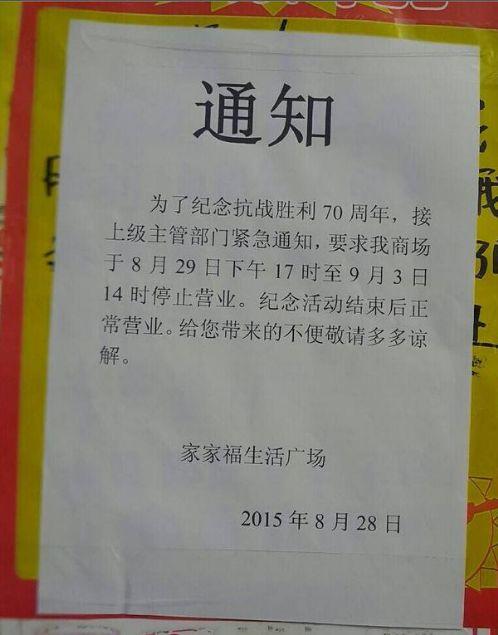 通知
为了纪念抗战胜利 70 周年，接
上级主管部门紧急通知，要求我商场
于 8 月 29 日下午 17 时至 9 月 3 日
14 时停止营业。纪念活动结束后正
常营业。给您带来的不便敬请多多谅
解。
家家福生活广场
2015 年 8 月 28 日